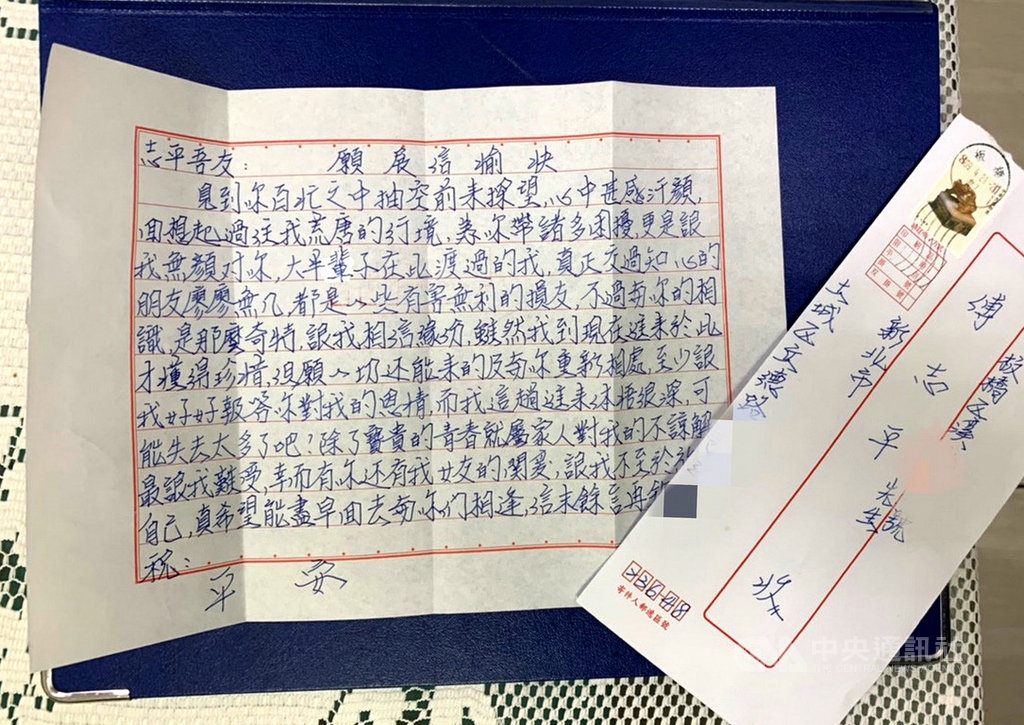 志平吾友： 願展信愉快
見到你百忙之中抽空前來探望，心中甚感汗顏，
回想起過往我荒唐的行境，為你帶諸多困擾，更是讓
我無顏对你，大半輩子在此渡過的我，真正交過知心的
朋友廖廖無几，都是一些有害無利的損友，不過与你的相
識，是那麼奇特，讓我相信緣份，雖然我到現在進來於此
才懂得珍惜，但願一切还能来的及与你重新相處，至少讓
我好好報答你對我的恩情，而我這趟進來体悟很深，可
能失去太多了吧！除了寶貴的青春就屬家人對我的不諒解
最讓我難受，幸而有你还有我女友的関爱，讓我不至於
自己，真希望能盡早回去与你们相逢，信末餘言再
祝：
平 安
板橋區漢
號
傅志平 先生 收
新北市
土城區立德路
寄件人郵遞區號
中央通訊社